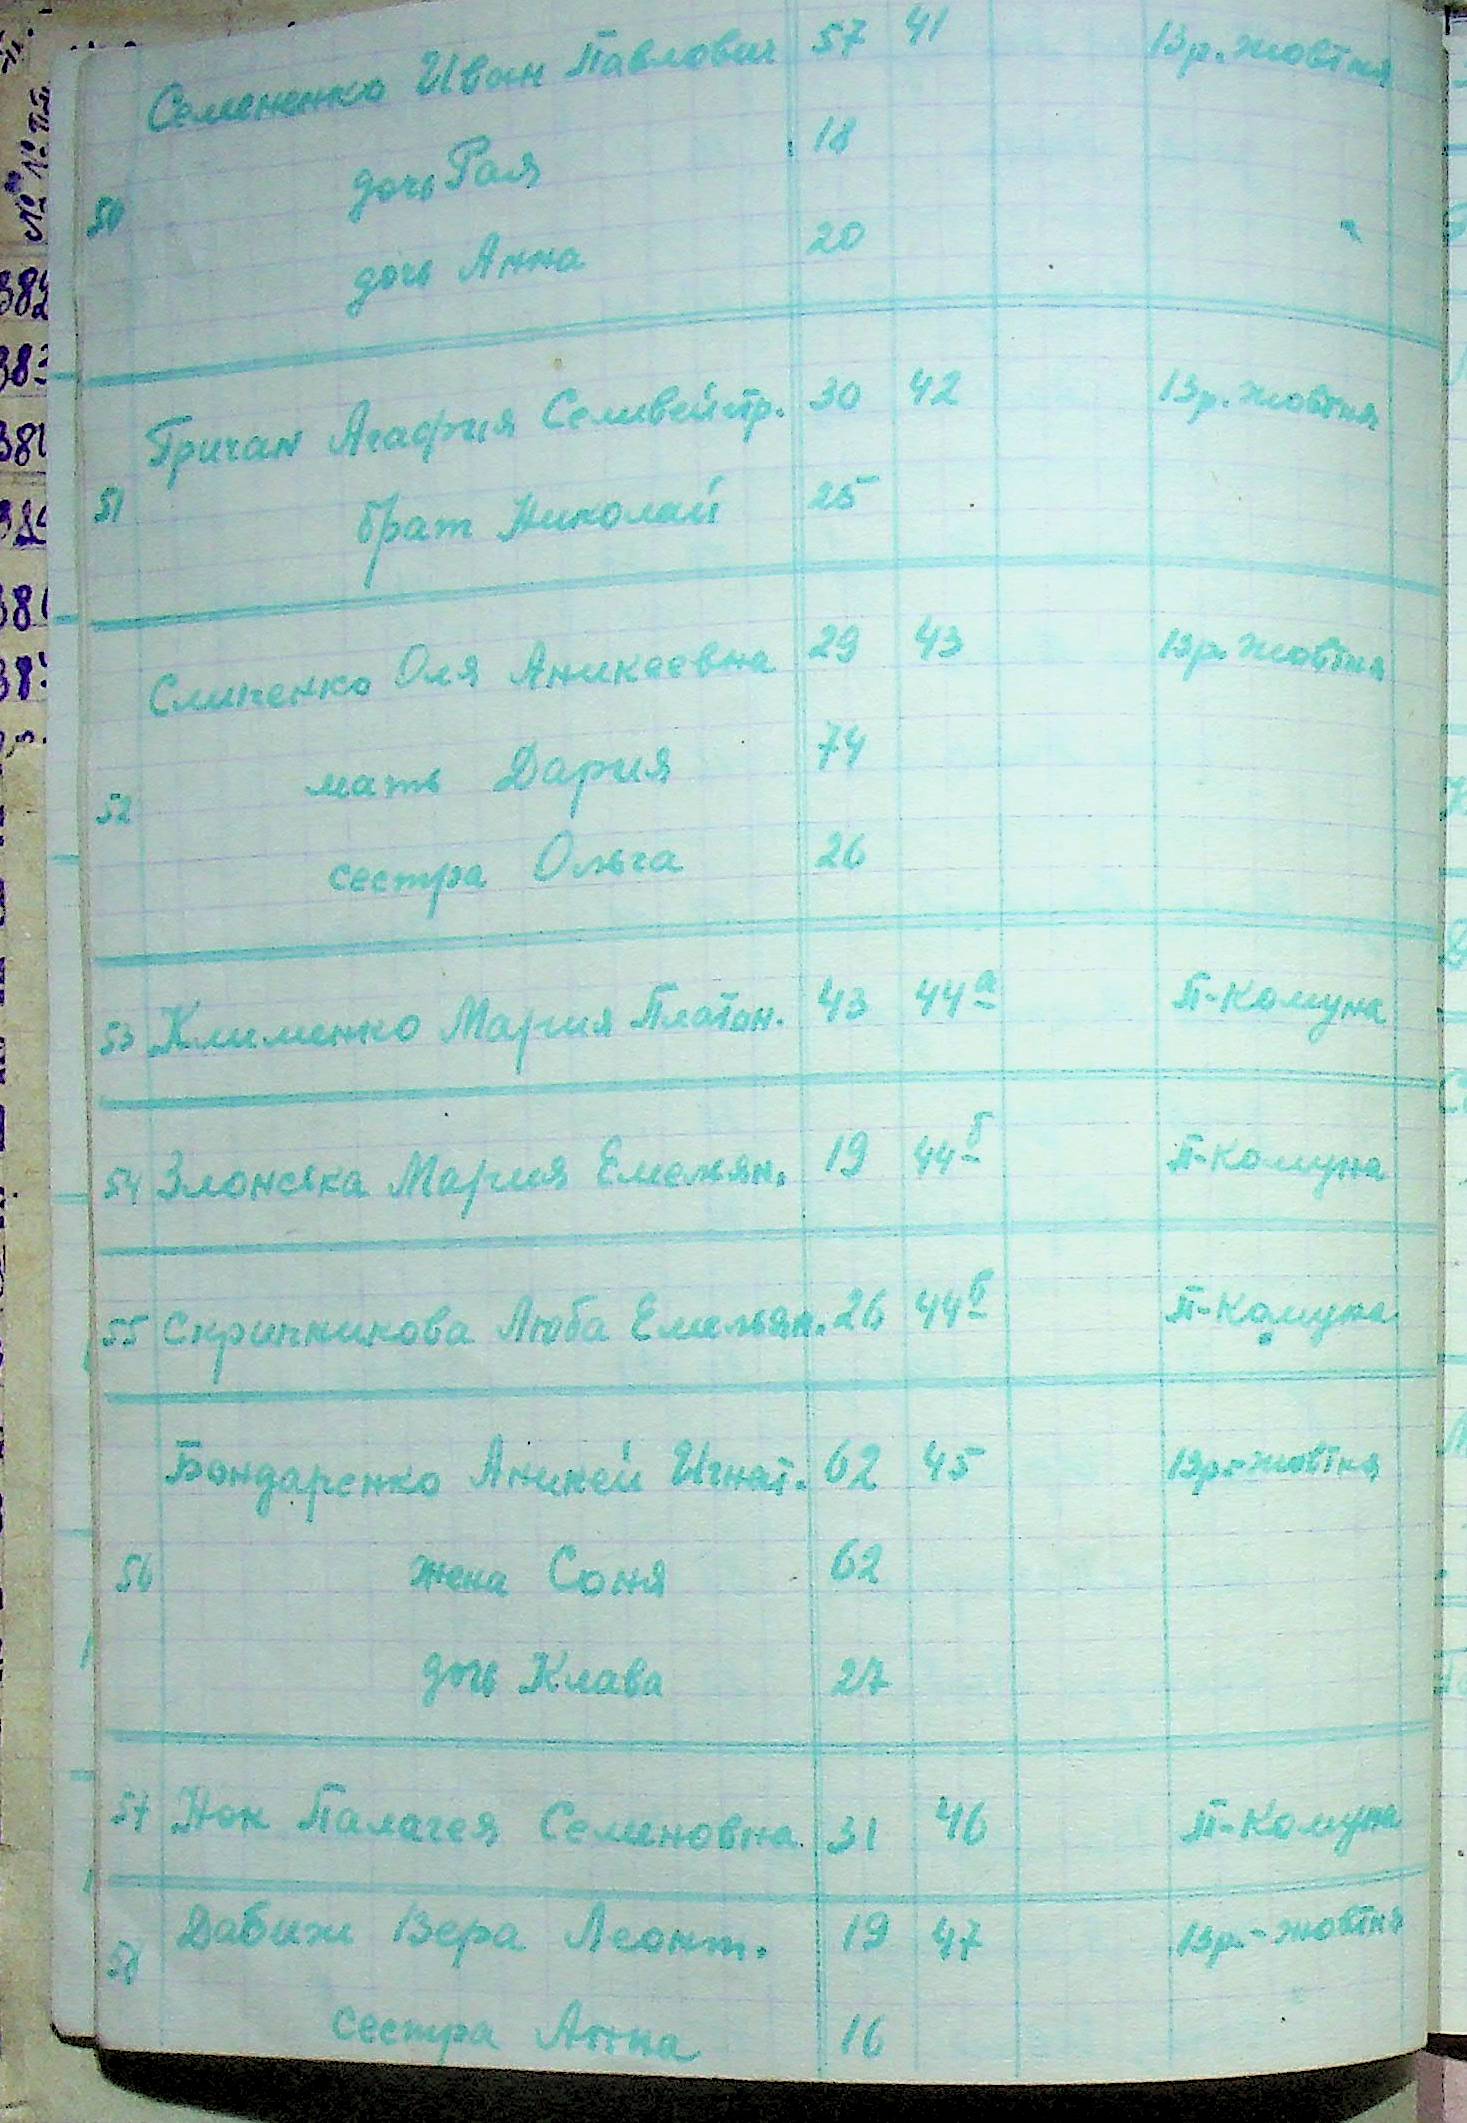 Семененко Иван Павлович 57 41 13 р. жовтня
дочь Рая 18
50
дочь Анна 20
Гричан Агафия Селивейстр. 30 42 13 р. жовтня
51 брат Николай 25
Слипенко Оля Аникеевна 29 43 13 р. жовтня
мать Дария 74
52
сестра Ольга 26
53 Клименко Мария Платон. 43 44а П-Комуна
54 Злонсяка Мария Емельян. 19 44б П-Комуна
55 Скрипникова Люба Емельян. 26 44б П-Комуна
Бондаренко Аникей Игнат. 62 45 13 р-жовтня
56 жена Соня 62
дочь Клава 27
57 Нон Палагея Семеновна 31 46 П-Комуна
Давиж Вера Леонт. 19 47 13 р-жовтня
58
сестра Анна 16
№№ пп
382
383